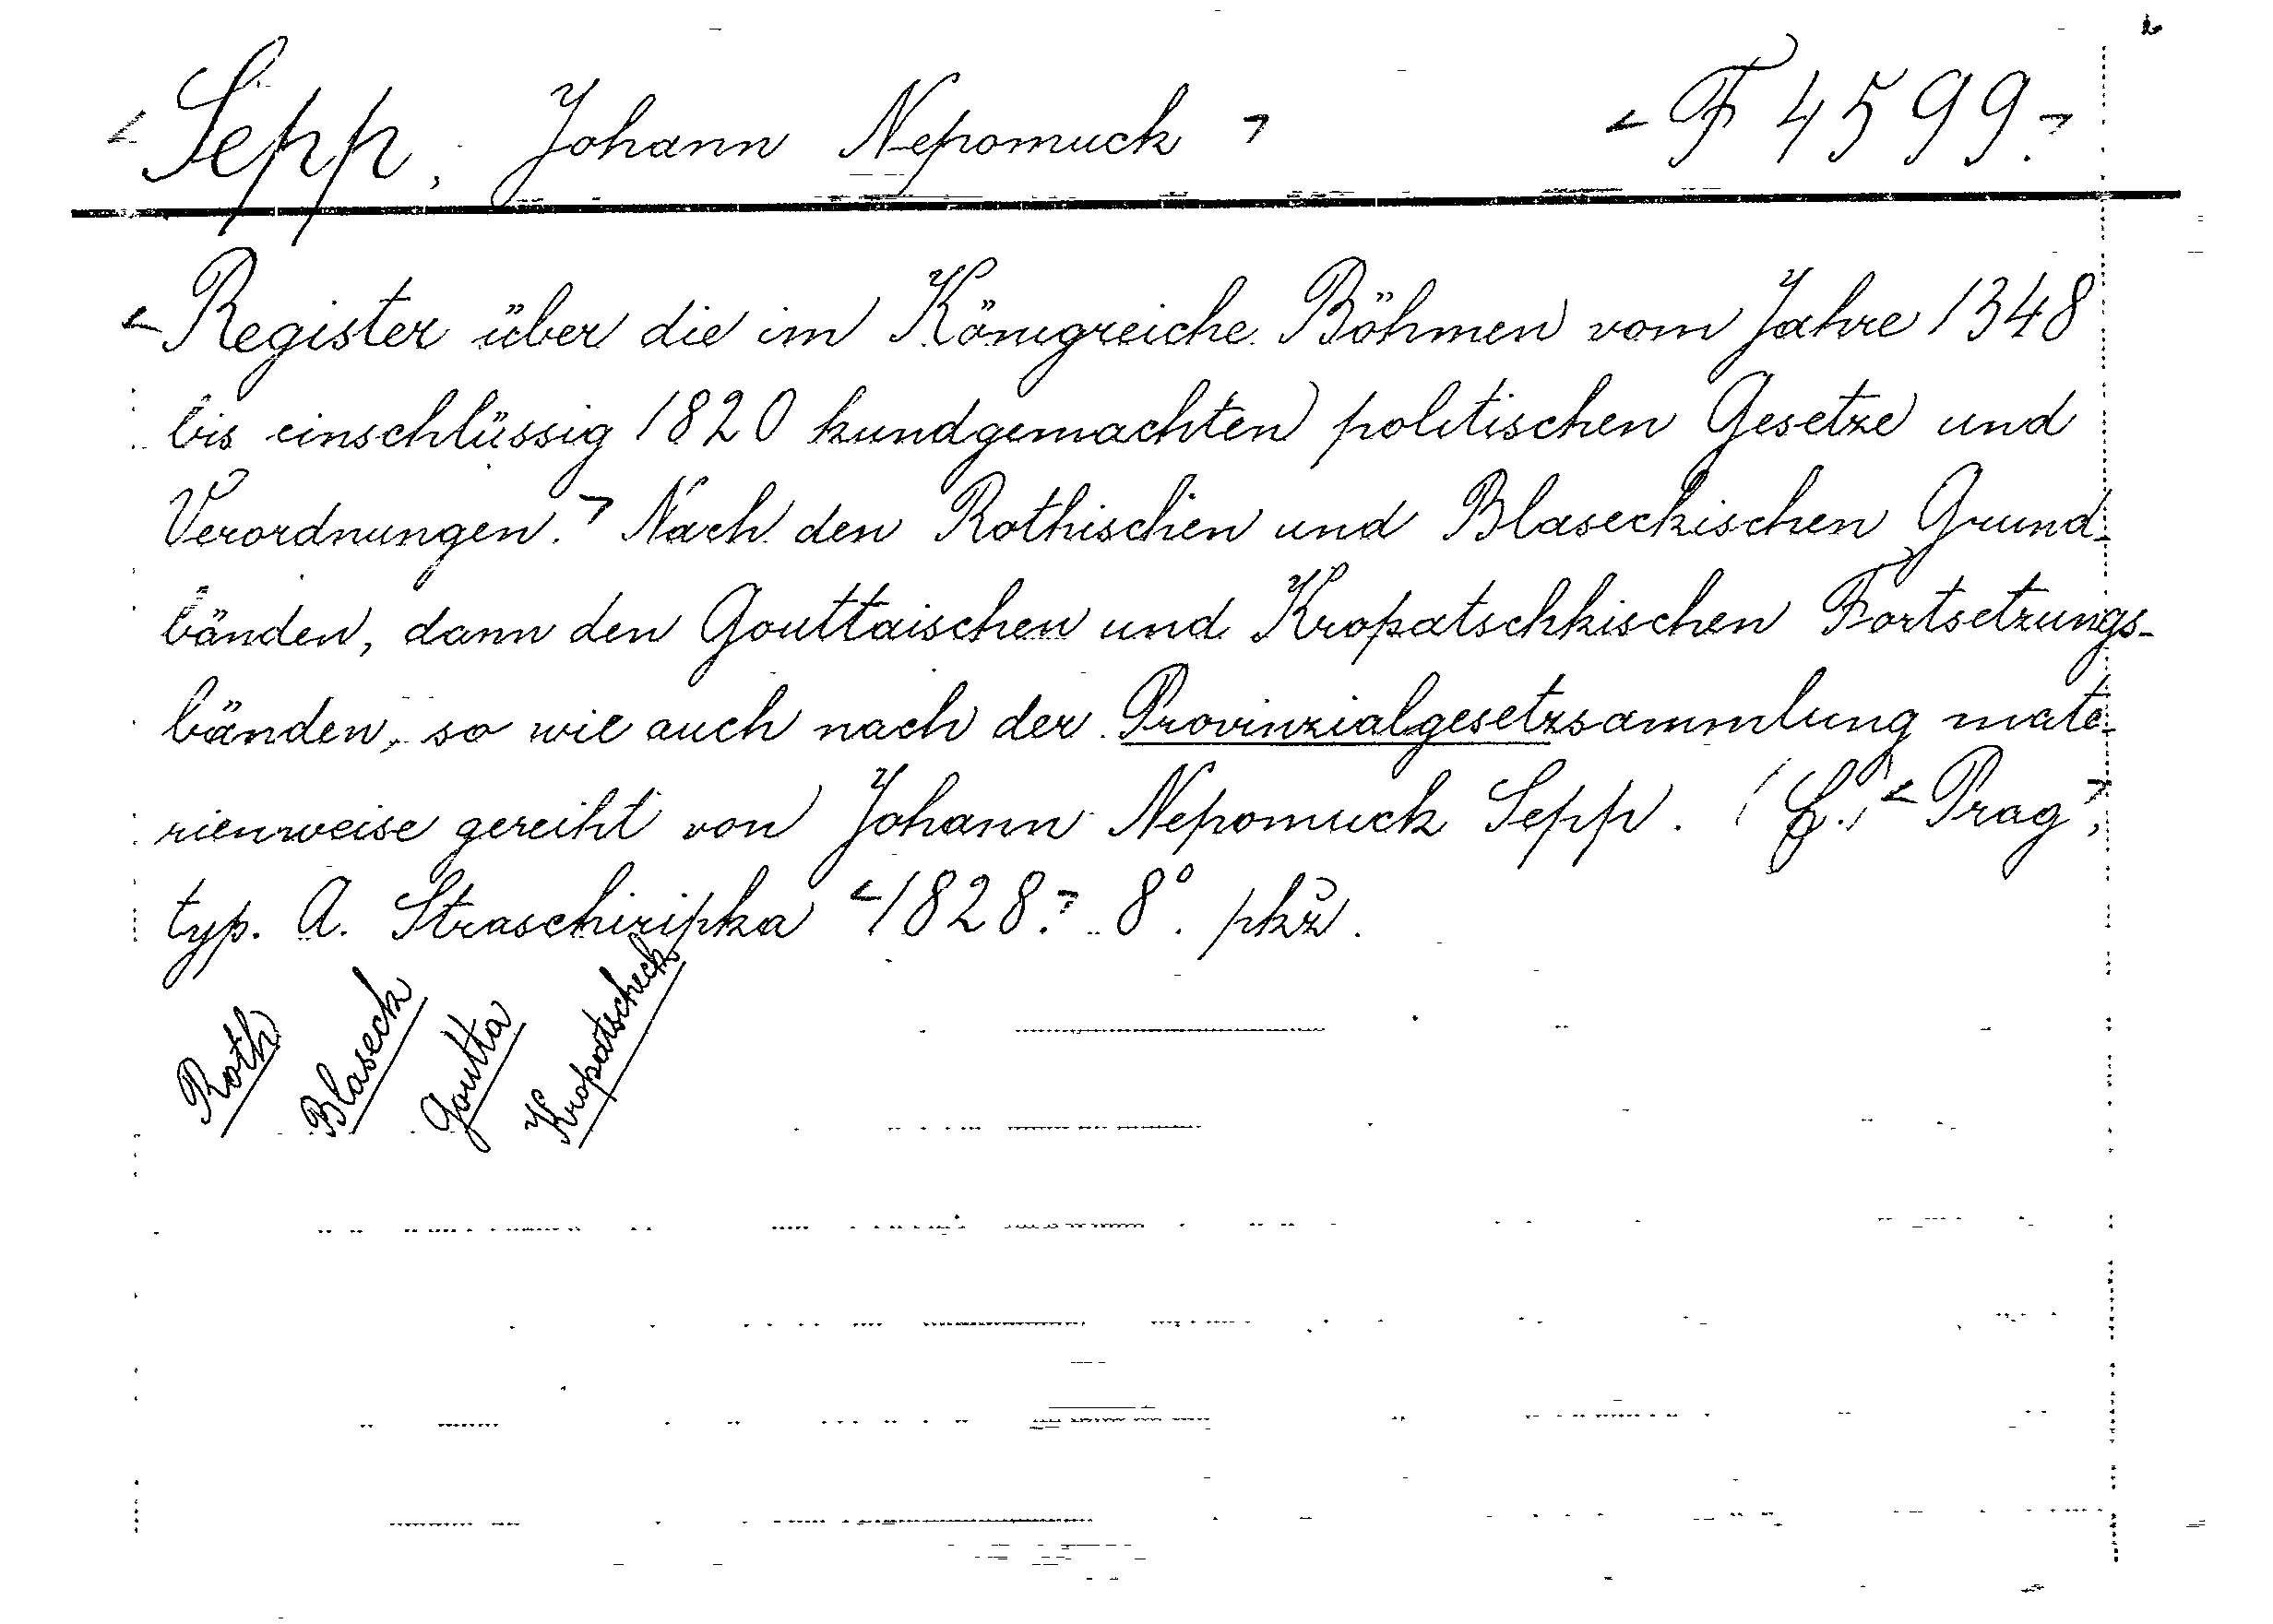 Sepp, Johann Nepomuck F 4599.
Register über die im Königreiche Böhmen vom Jahre 1348
bis einschlüssig 1820 kundgemachten politischen Gesetze und
Verordnungen. Nach den Rothischen und Blaseckischen Grund-
bänden, dann den Gouttaischen und Kropatschkischen Fortsetzungs-
bänden, so wie auch nach der Provinzialgesetzsammlung mate-
rienweise gereiht von Johann Nepomuck Sepp. Prag,
typ. A. Straschiripka 1828. 8°.
Roth
Blaseck
Goutta
Kropatscheck